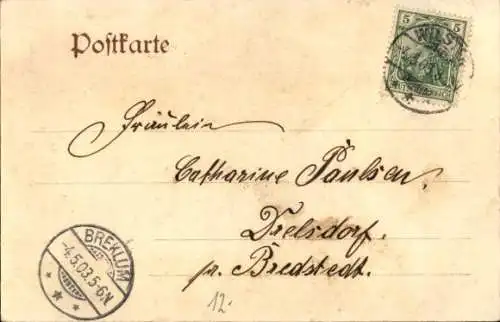 Postkarte
5 5
WILST
Fräulein
Catharine Paulsen,
Drelsdorf.
pr. Bredstedt.
BREKLUM
-4.5.03.5-6N
12.